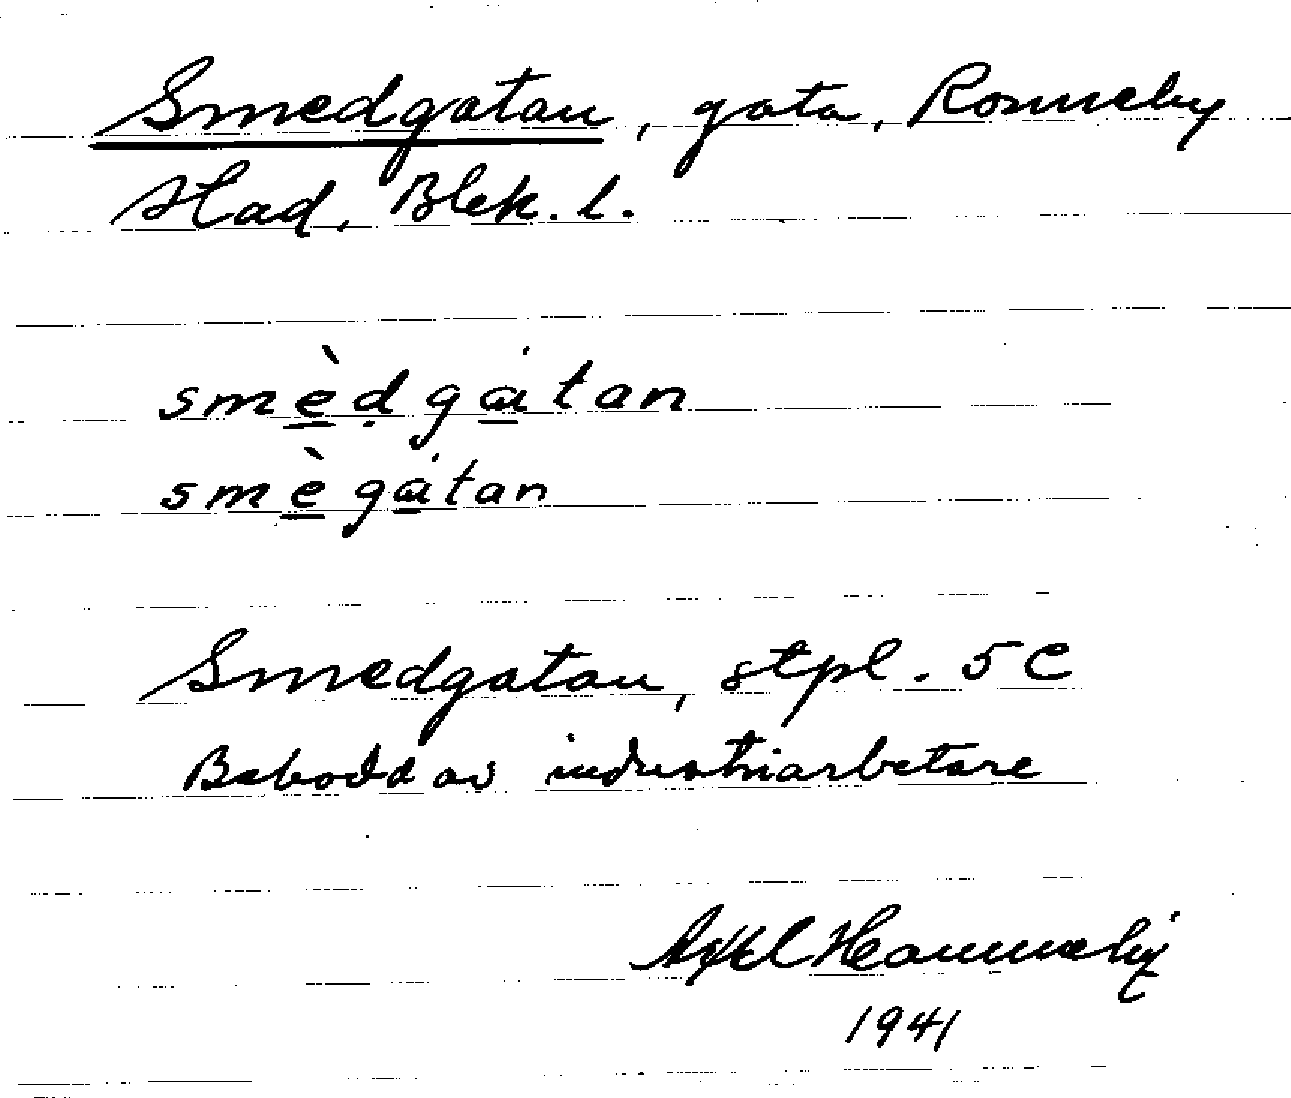 Smedgatan, gata, Ronneby
stad, Blek. l.
smèdgatan
smègatan
Smedgatan, stpl. 5 C
Bebodd av industriarbetare
Axel
1941